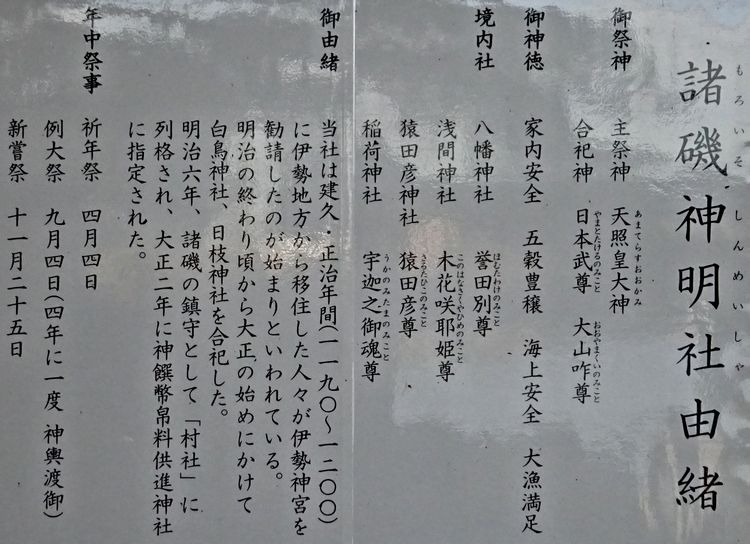 諸磯神明社由緒
もろいそしんめいしゃ
御祭神 主祭神 天照皇大神
あまてらすおおかみ
合祀神 日本武尊 大山咋尊
やまとたけるのみこと おおやまくいのみこと
御神徳 家内安全 五穀豊穣 海上安全 大漁満足
境内社 八幡神社 誉田別尊
ほむたわけのみこと
浅間神社 木花咲耶姫尊
このはなさくやひめのみこと
猿田彦神社 猿田彦尊
さるたひこのみこと
稲荷神社 宇迦之御魂尊
うかのみたまのみこと
御由緒 当社は建久・正治年間(一一九〇〜一二〇〇)
に伊勢地方から移住した人々が伊勢神宮を
勧請したのが始まりといわれている。
明治の終わり頃から大正の始めにかけて
白鳥神社、日枝神社を合祀した。
明治六年、諸磯の鎮守として「村社」に
列格され、大正二年に神饌幣帛料供進神社
に指定された。
年中祭事 祈年祭 四月四日
例大祭 九月四日(四年に一度 神輿渡御)
新嘗祭 十一月二十五日